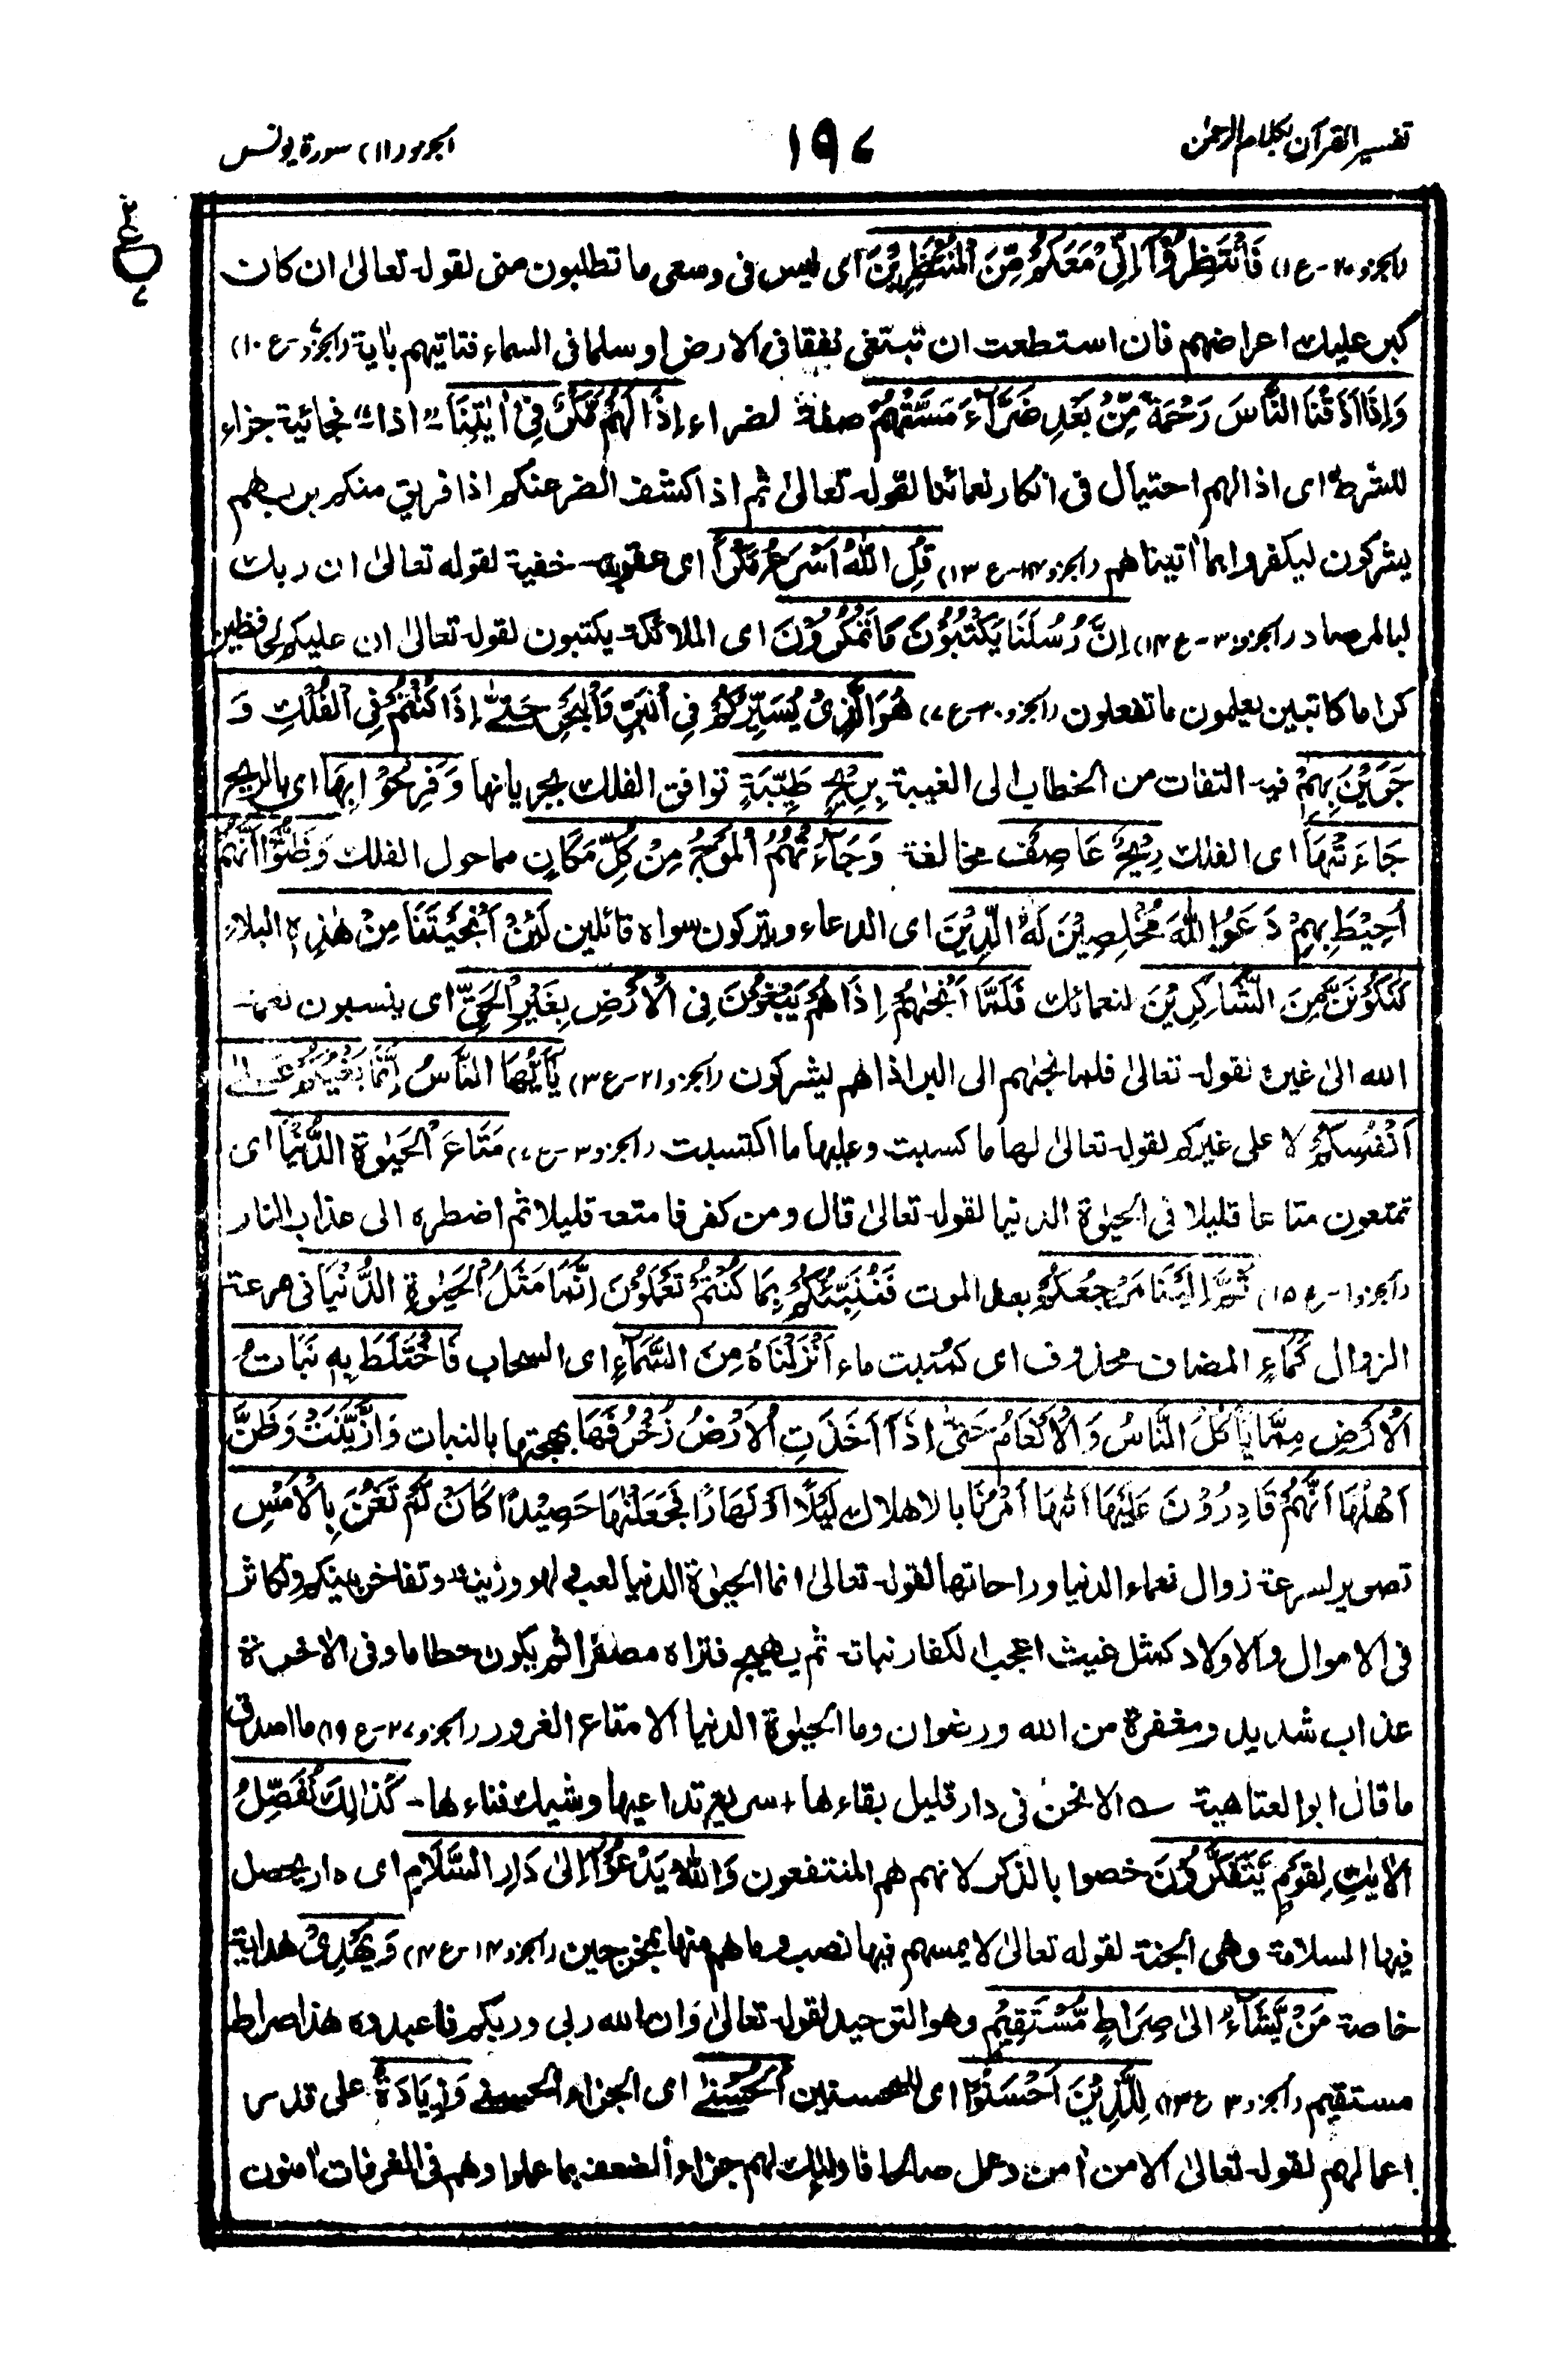 تفسير القرآن بكلام الرحمٰن
١٩٧
الجزء (١١) سورة يونس
(الجزو ٢٠-ع ١) فَانْتَظِرُوْآ اِنِّيْ مَعَكُمْ مِّنَ الْمُنْتَظِرِيْنَ اى ليس فى وسعى ما تطلبون منى لقوله تعالىٰ ان كان
كبر عليك اعراضهم فان استطعت ان تبتغى نفقا فى الارض او سلما فى السماء فتاتيهم باٰية (الجزو٧-ع ١٠)
وَاِذَا اَذَقْنَا النَّاسَ رَحْمَةً مِّنْۢ بَعْدِ ضَرَّآءَ مَسَّتْهُمْ صفة لضراء اِذَا لَهُمْ مَّكْرٌ فِيْٓ اٰيٰتِنَا "اذا" فجائية جزاء
للشرط اى اذا لهم احتيال فى انكار نعمائنا لقوله تعالىٰ ثم اذا كشف الضر عنكم اذا فريق منكم بربهم
يشركون ليكفروا بما اٰتيناهم (الجزو ١٤-ع ١٣) قُلِ اللّٰهُ اَسْرَعُ مَكْرًا اى عقوبة- خفية لقوله تعالىٰ ان ربك
لبالمرصاد (الجزو ٣٠-ع ١٤) اِنَّ رُسُلَنَا يَكْتُبُوْنَ مَا تَمْكُرُوْنَ اى الملائكة يكتبون لقوله تعالىٰ ان عليكم لحافظين
كراما كاتبين يعلمون ما تفعلون (الجزو ٣٠-ع ٧) هُوَ الَّذِيْ يُسَيِّرُكُمْ فِي الْبَرِّ وَالْبَحْرِ حَتّٰٓى اِذَا كُنْتُمْ فِي الْفُلْكِ وَ
جَرَيْنَ بِهِمْ فيه التفات من الخطاب الى الغيبة بِرِيْحٍ طَيِّبَةٍ توافق الفلك بجريانها وَفَرِحُوْا بِهَا اى بالريح
جَآءَتْهَا اى الفلك رِيْحٌ عَاصِفٌ مخالفة وَجَآءَهُمُ الْمَوْجُ مِنْ كُلِّ مَكَانٍ مما حول الفلك وَظَنُّوْٓا اَنَّهُمْ
اُحِيْطَ بِهِمْ دَعَوُا اللّٰهَ مُخْلِصِيْنَ لَهُ الدِّيْنَ اى الدعاء ويتركون سواه قائلين لَئِنْ اَنْجَيْتَنَا مِنْ هٰذِهٖ البلاء
لَنَكُوْنَنَّ مِنَ الشّٰكِرِيْنَ لنعمائك فَلَمَّآ اَنْجٰهُمْ اِذَا هُمْ يَبْغُوْنَ فِي الْاَرْضِ بِغَيْرِ الْحَقِّ اى ينسبون نعمة
الله الىٰ غيره لقوله تعالىٰ فلما نجٰهم الى البر اذا هم يشركون (الجزو ٢١-ع ٣) يٰٓاَيُّهَا النَّاسُ اِنَّمَا بَغْيُكُمْ عَلٰٓى
اَنْفُسِكُمْ لا على غيركم لقوله تعالىٰ لها ما كسبت وعليها ما اكتسبت (الجزو ٣-ع ٧) مَتَاعَ الْحَيٰوةِ الدُّنْيَا اى
تمتعون متاعا قليلا فى الحيٰوة الدنيا لقوله تعالىٰ قال ومن كفر فامتعه قليلا ثم اضطره الى عذاب النار
(الجزو ١-ع ١٥) ثُمَّ اِلَيْنَا مَرْجِعُكُمْ بعد الموت فَنُنَبِّئُكُمْ بِمَا كُنْتُمْ تَعْمَلُوْنَ اِنَّمَا مَثَلُ الْحَيٰوةِ الدُّنْيَا فى سرعة
الزوال كَمَآءٍ المضاف محذوف اى كمنبت ماء اَنْزَلْنَاهُ مِنَ السَّمَآءِ اى السحاب فَاخْتَلَطَ بِهٖ نَبَاتُ
الْاَرْضِ مِمَّا يَاْكُلُ النَّاسُ وَالْاَنْعَامُ حَتّٰٓى اِذَآ اَخَذَتِ الْاَرْضُ زُخْرُفَهَا بهجتها بالنبات وَازَّيَّنَتْ وَظَنَّ
اَهْلُهَآ اَنَّهُمْ قَادِرُوْنَ عَلَيْهَآ اَتٰهَآ اَمْرُنَا بالاهلاك لَيْلًا اَوْ نَهَارًا فَجَعَلْنٰهَا حَصِيْدًا كَاَنْ لَّمْ تَغْنَ بِالْاَمْسِ
تصوير لسرعة زوال نعماء الدنيا وراحاتها لقوله تعالىٰ انما الحيٰوة الدنيا لعب و لهو وزينة وتفاخر بينكم وتكاثر
فى الاموال والاولاد كمثل غيث اعجب الكفار نباته ثم يهيج فتراه مصفرا ثم يكون حطاما وفى الاٰخرة
عذاب شديد ومغفرة من الله ورضوان وما الحيٰوة الدنيا الا متاع الغرور (الجزو ٢٧-ع ١٩) ما اصدق
ما قال ابو العتاهية الا نحن فى دار قليل بقاءها + سريع تداعيها وشيك فناءها - كَذٰلِكَ نُفَصِّلُ
الْاٰيٰتِ لِقَوْمٍ يَّتَفَكَّرُوْنَ خصوا بالذكر لانهم هم المنتفعون وَاللّٰهُ يَدْعُوْٓا اِلٰى دَارِ السَّلَامِ اى دار يحصل
فيها السلامة وهى الجنة لقوله تعالىٰ لا يمسهم فيها نصب وما هم منها بمخرجين (الجزو ١٤-ع ٤) وَيَهْدِيْ هداية
خاصة مَنْ يَّشَآءُ الىٰ صِرَاطٍ مُّسْتَقِيْمٍ وهو التوحيد لقوله تعالىٰ وَان الله ربى وربكم فاعبدوه هذا صراط
مستقيم (الجزو ٣ ع ١٣) لِلَّذِيْنَ اَحْسَنُوْا اى المحسنين الْحُسْنٰى اى الجزاء الحسنى وَزِيَادَةٌ على قدر
اعمالهم لقوله تعالىٰ الا من اٰمن وعمل صالحا فاولئك لهم جزاء الضعف بما عملوا وهم فى الغرفات اٰمنون